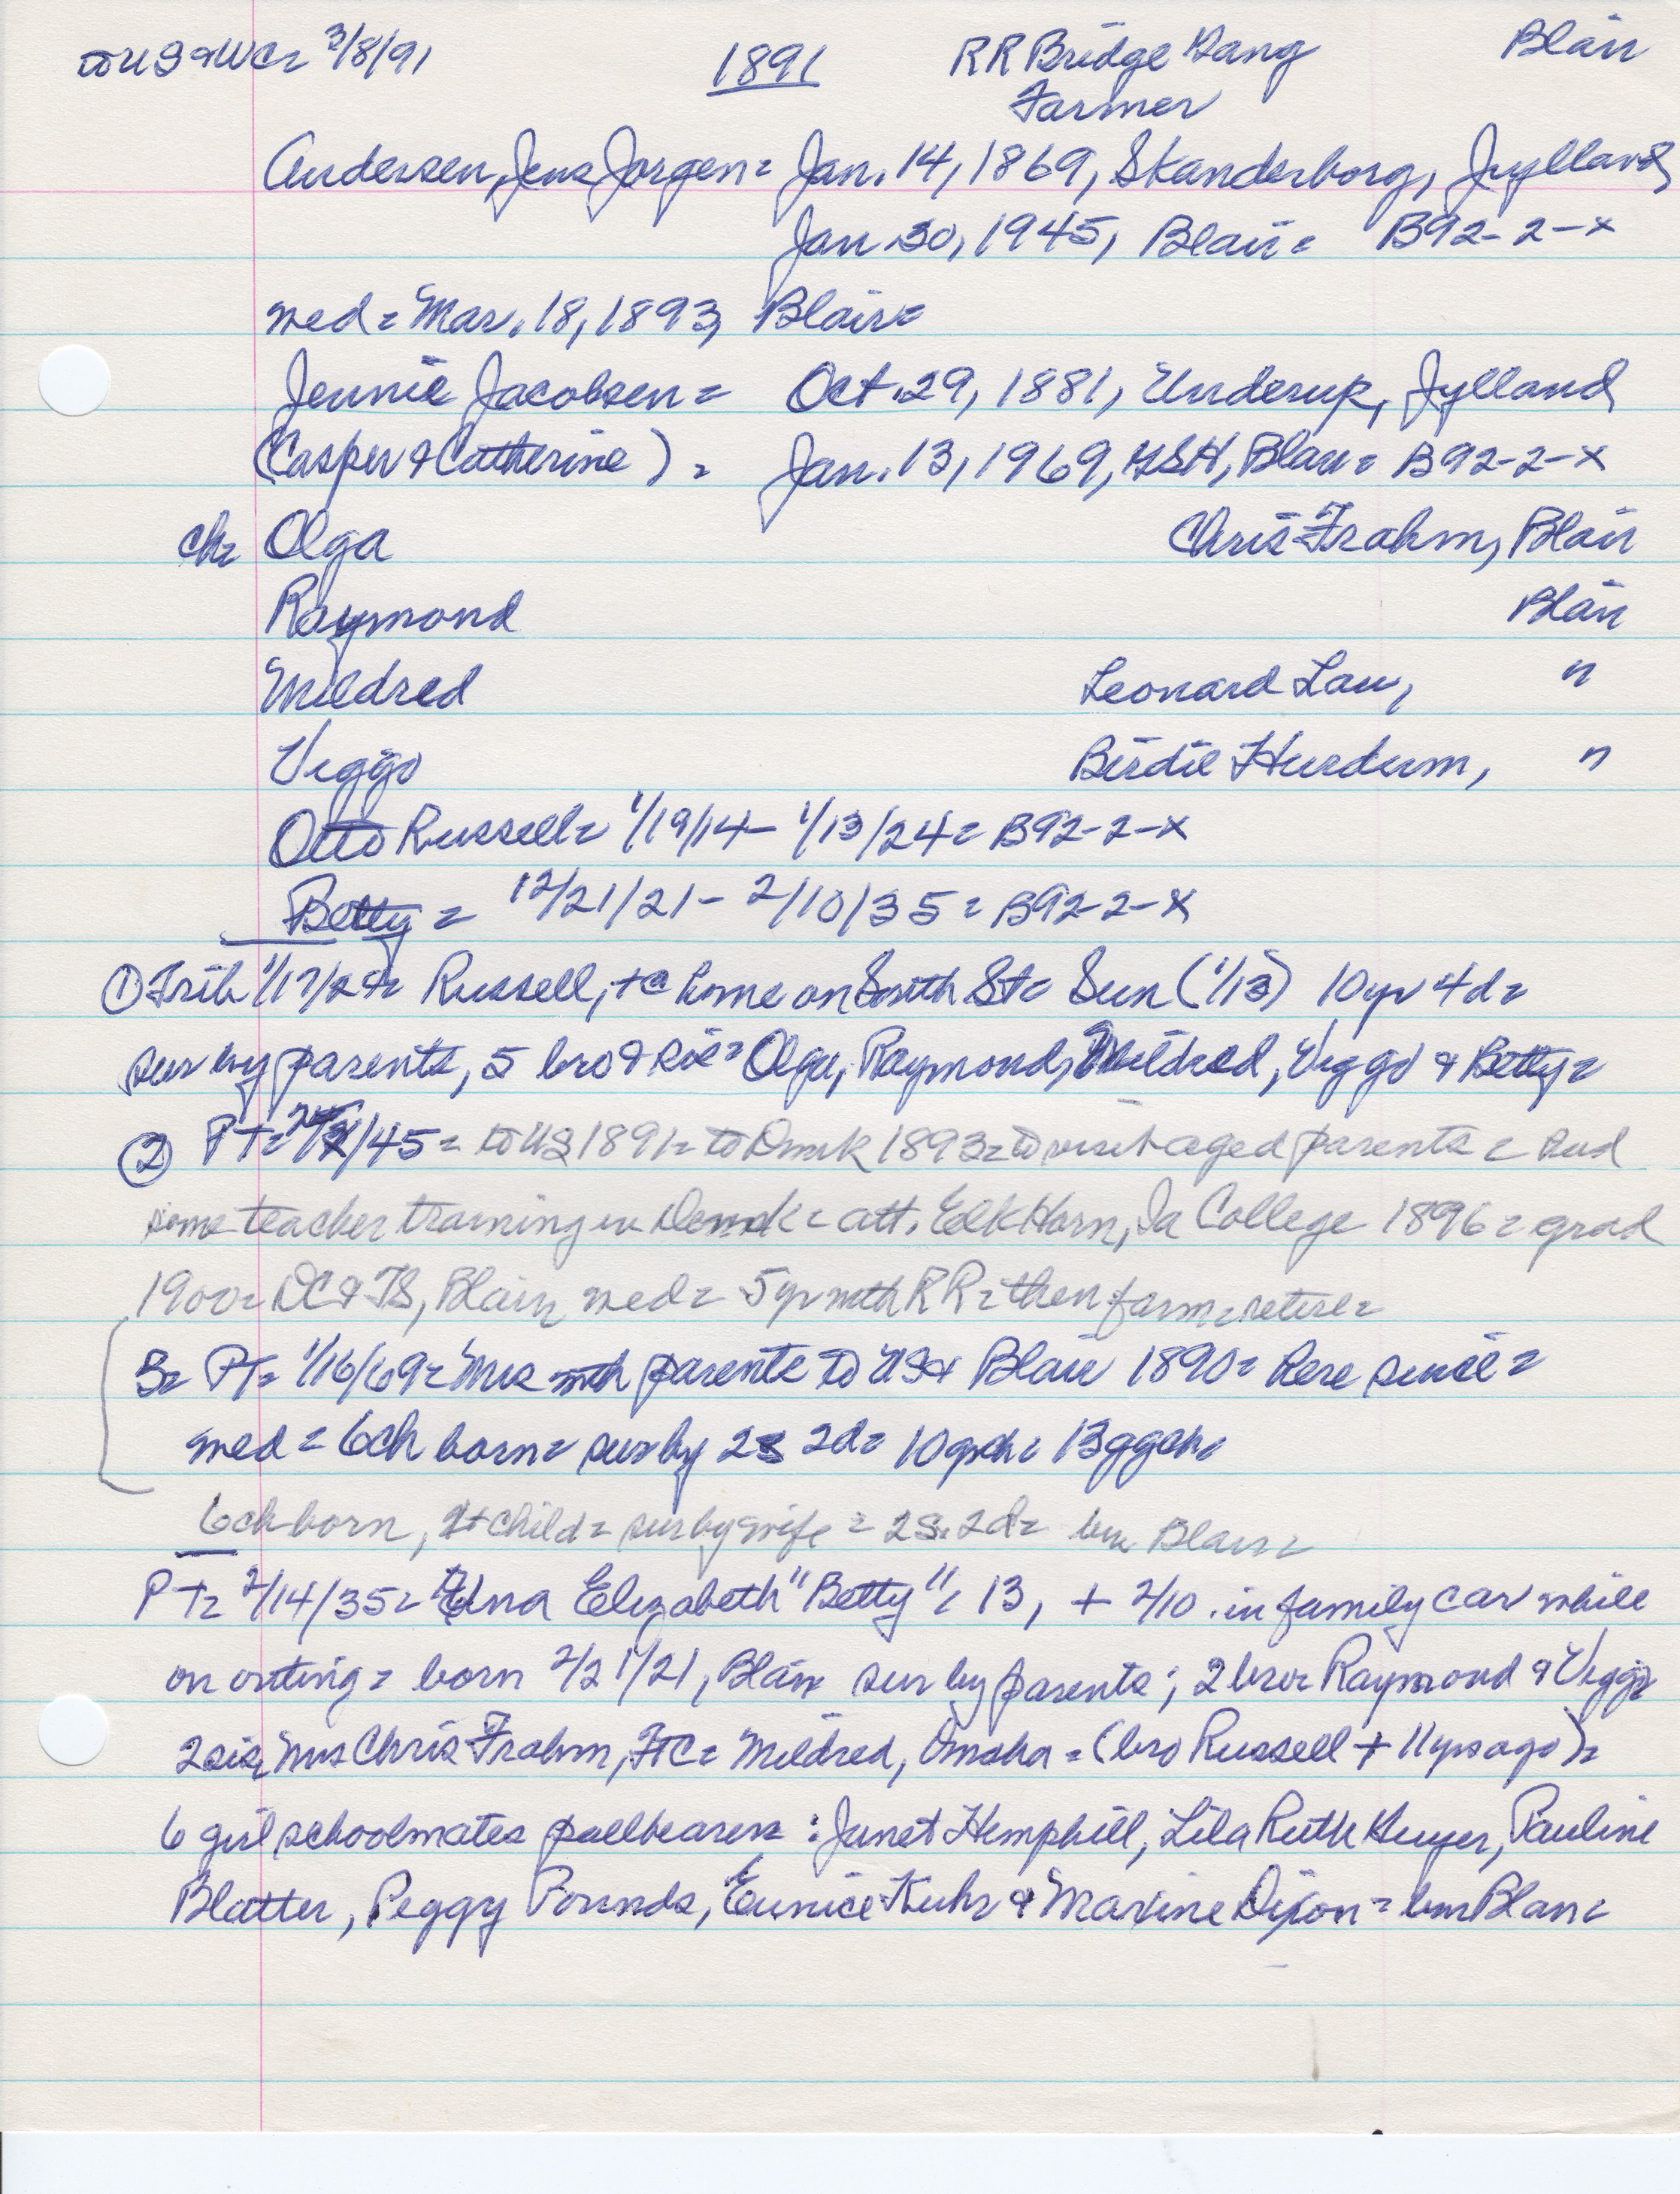 to US & WC= 3/8/91 1891 RR Bridge Gang Blair
Farmer
Andersen, Jens Jorgen= Jan. 14, 1869, Skanderborg, Jylland
Jan. 30, 1945, Blair= B92-2-x
wed= Mar. 18, 1893, Blair=
Jennie Jacobsen= Oct. 29, 1881, Underup, Jylland
(Casper & Catherine )= Jan. 13, 1969, GSH, Blair= B92-2-x
ch= Olga Chris Frahm, Blair
Raymond Blair
Mildred Leonard Lau, "
Viggo Birdie Hurdum, "
Otto Russell= 1/19/14- 1/13/24= B92-2-x
Betty= 12/21/21- 2/10/35= B92-2-x
① Trib 1/17/24= Russell, + @ home on South St= Sun (1/13) 10yr 4d=
sur by parents, 5 bro & sis= Olga, Raymond, Mildred, Viggo & Betty=
② PT= /45= to US 1891= to Dmk 1893= to visit aged parents= had
some teacher training in Denmk= att. Elk Horn, Ia College 1896= grad
1900= DC & TS, Blair, wed= 5yr with RR= then farm= retire=
3= PT= 1/16/69= Mrs with parents to US & Blair 1890= here since=
wed= 6ch born= sur by 2s 2d= 10gch= 13ggch=
6ch born, child= sur by wife= 2s. 2d= bur Blair=
PT= 2/14/35= Edna Elizabeth "Betty"= 13, + 2/10 in family car while
on outing= born 2/21/21, Blair sur by parents; 2 bro= Raymond & Viggo
2 sis, Mrs Chris Frahm, FtC= Mildred, Omaha= (bro Russell + 11yrs ago)=
6 girl schoolmates pallbearers: Janet Hemphill, Lila Ruth , Pauline
Blatter, Peggy Pounds, Eunice Kuhr & Maxine Dixon= bur Blair=